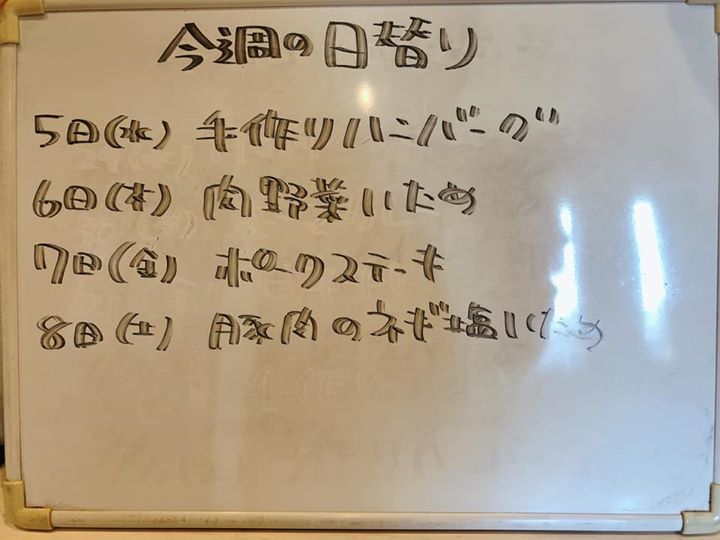 今週の日替り
5日(水) 手作りハンバーグ
6日(木) 肉野菜いため
7日(金) ポークステーキ
8日(土) 豚肉のネギ塩いため